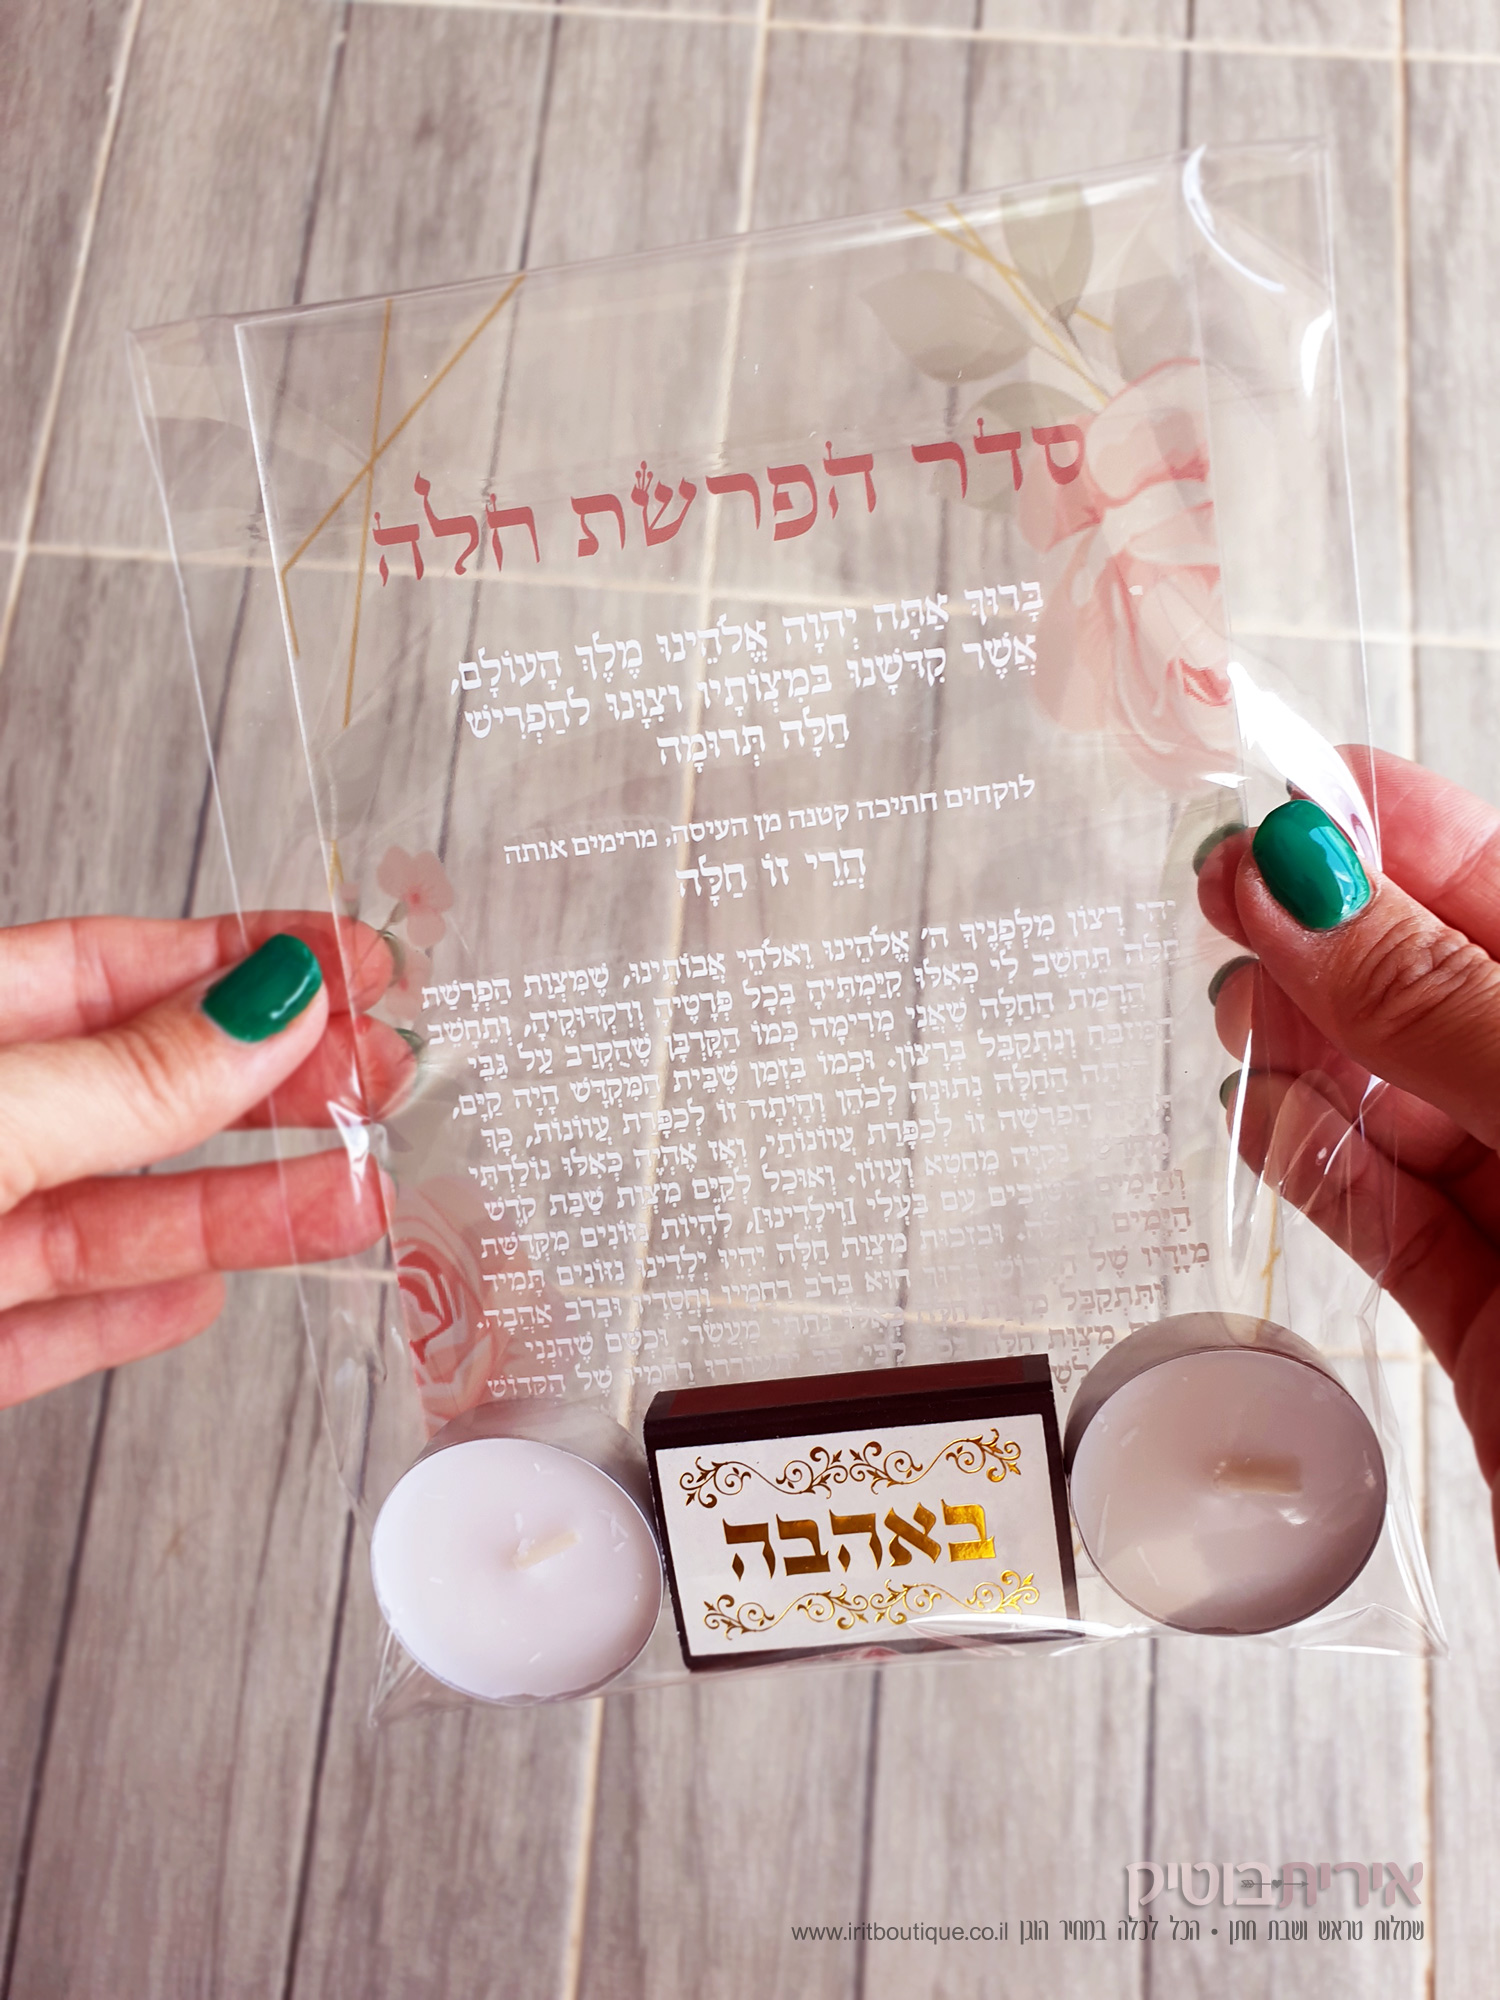 סדר הפרשת חלה
בָּרוּךְ אַתָּה יְהֹוָה אֱלֹהֵינוּ מֶלֶךְ הָעוֹלָם,
אֲשֶׁר קִדְּשָׁנוּ בְּמִצְוֹתָיו וְצִוָּנוּ לְהַפְרִישׁ
חַלָּה תְּרוּמָה
לוקחים חתיכה קטנה מן העיסה, מרימים אותה
הֲרֵי זוֹ חַלָּה
יְהִי רָצוֹן מִלְּפָנֶיךָ ה' אֱלֹהֵינוּ וֵאלֹהֵי אֲבוֹתֵינוּ, שֶׁמִּצְוַת הַפְרָשַׁת
חַלָּה תֵּחָשֵׁב לִי כְּאִלּוּ קִיַּמְתִּיהָ בְּכָל פְּרָטֶיהָ וְדִקְדּוּקֶיהָ, וְתֵחָשֵׁב
הֲרָמַת הַחַלָּה שֶׁאֲנִי מְרִימָה כְּמוֹ הַקָּרְבָּן שֶׁהֻקְרַב עַל גַּבֵּי
הַמִּזְבֵּחַ וְנִתְקַבֵּל בְּרָצוֹן. וּכְמוֹ בִּזְמַן שֶׁבֵּית הַמִּקְדָּשׁ הָיָה קַיָּם,
הַחַלָּה נְתוּנָה לַכֹּהֵן וְהָיְתָה זוֹ לְכַפָּרַת עֲווֹנוֹת, כָּךְ
הַפְרָשָׁה זוֹ לְכַפָּרַת עֲווֹנוֹתַי, וְאָז אֶהְיֶה כְּאִלּוּ נוֹלַדְתִּי
נְקִיָּה מֵחֵטְא וְעָוֹן. וְאוּכַל לְקַיֵּם מִצְוַת שַׁבַּת קֹדֶשׁ
עִם בַּעְלִי [וִילָדֵינוּ], לִהְיוֹת נִזּוֹנִים מִקְּדֻשַּׁת
הַיָּמִים וּבִזְכוּת מִצְוַת חַלָּה יִהְיוּ יְלָדֵינוּ נִזּוֹנִים תָּמִיד
מִיָּדָיו שֶׁל הוּא בְּרֹב רַחֲמָיו וַחֲסָדָיו וּבְרֹב אַהֲבָה.
וְתִתְקַבֵּל נָתַתִּי מַעֲשֵׂר. וּכְשֵׁם שֶׁהִנְנִי
מִצְוַת חַלָּה רַחֲמָיו שֶׁל הַקָּדוֹשׁ
באהבה
אירית בוטיק
שמלות טראש ושבת חתן • הכל לכלה במחיר הוגן www.iritboutique.co.il